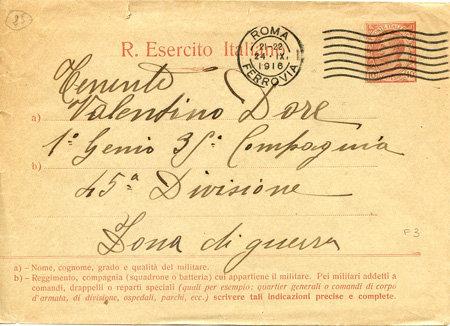 25
R. Esercito Italiano
ROMA
21-22
24·IX.
1916
FERROVIA
Tenente
a) Valentino Dore
1° Genio 35a Compagnia
b)
45a Divisione
Zona di guerra
F3
a) – Nome, cognome, grado e qualità del militare.
b) – Reggimento, compagnia (squadrone o batteria) cui appartiene il militare. Pei militari addetti a
comandi, drappelli o reparti speciali (quali per esempio: quartier generali o comandi di corpo
d'armata, di divisione, ospedali, parchi, ecc.) scrivere tali indicazioni precise e complete.